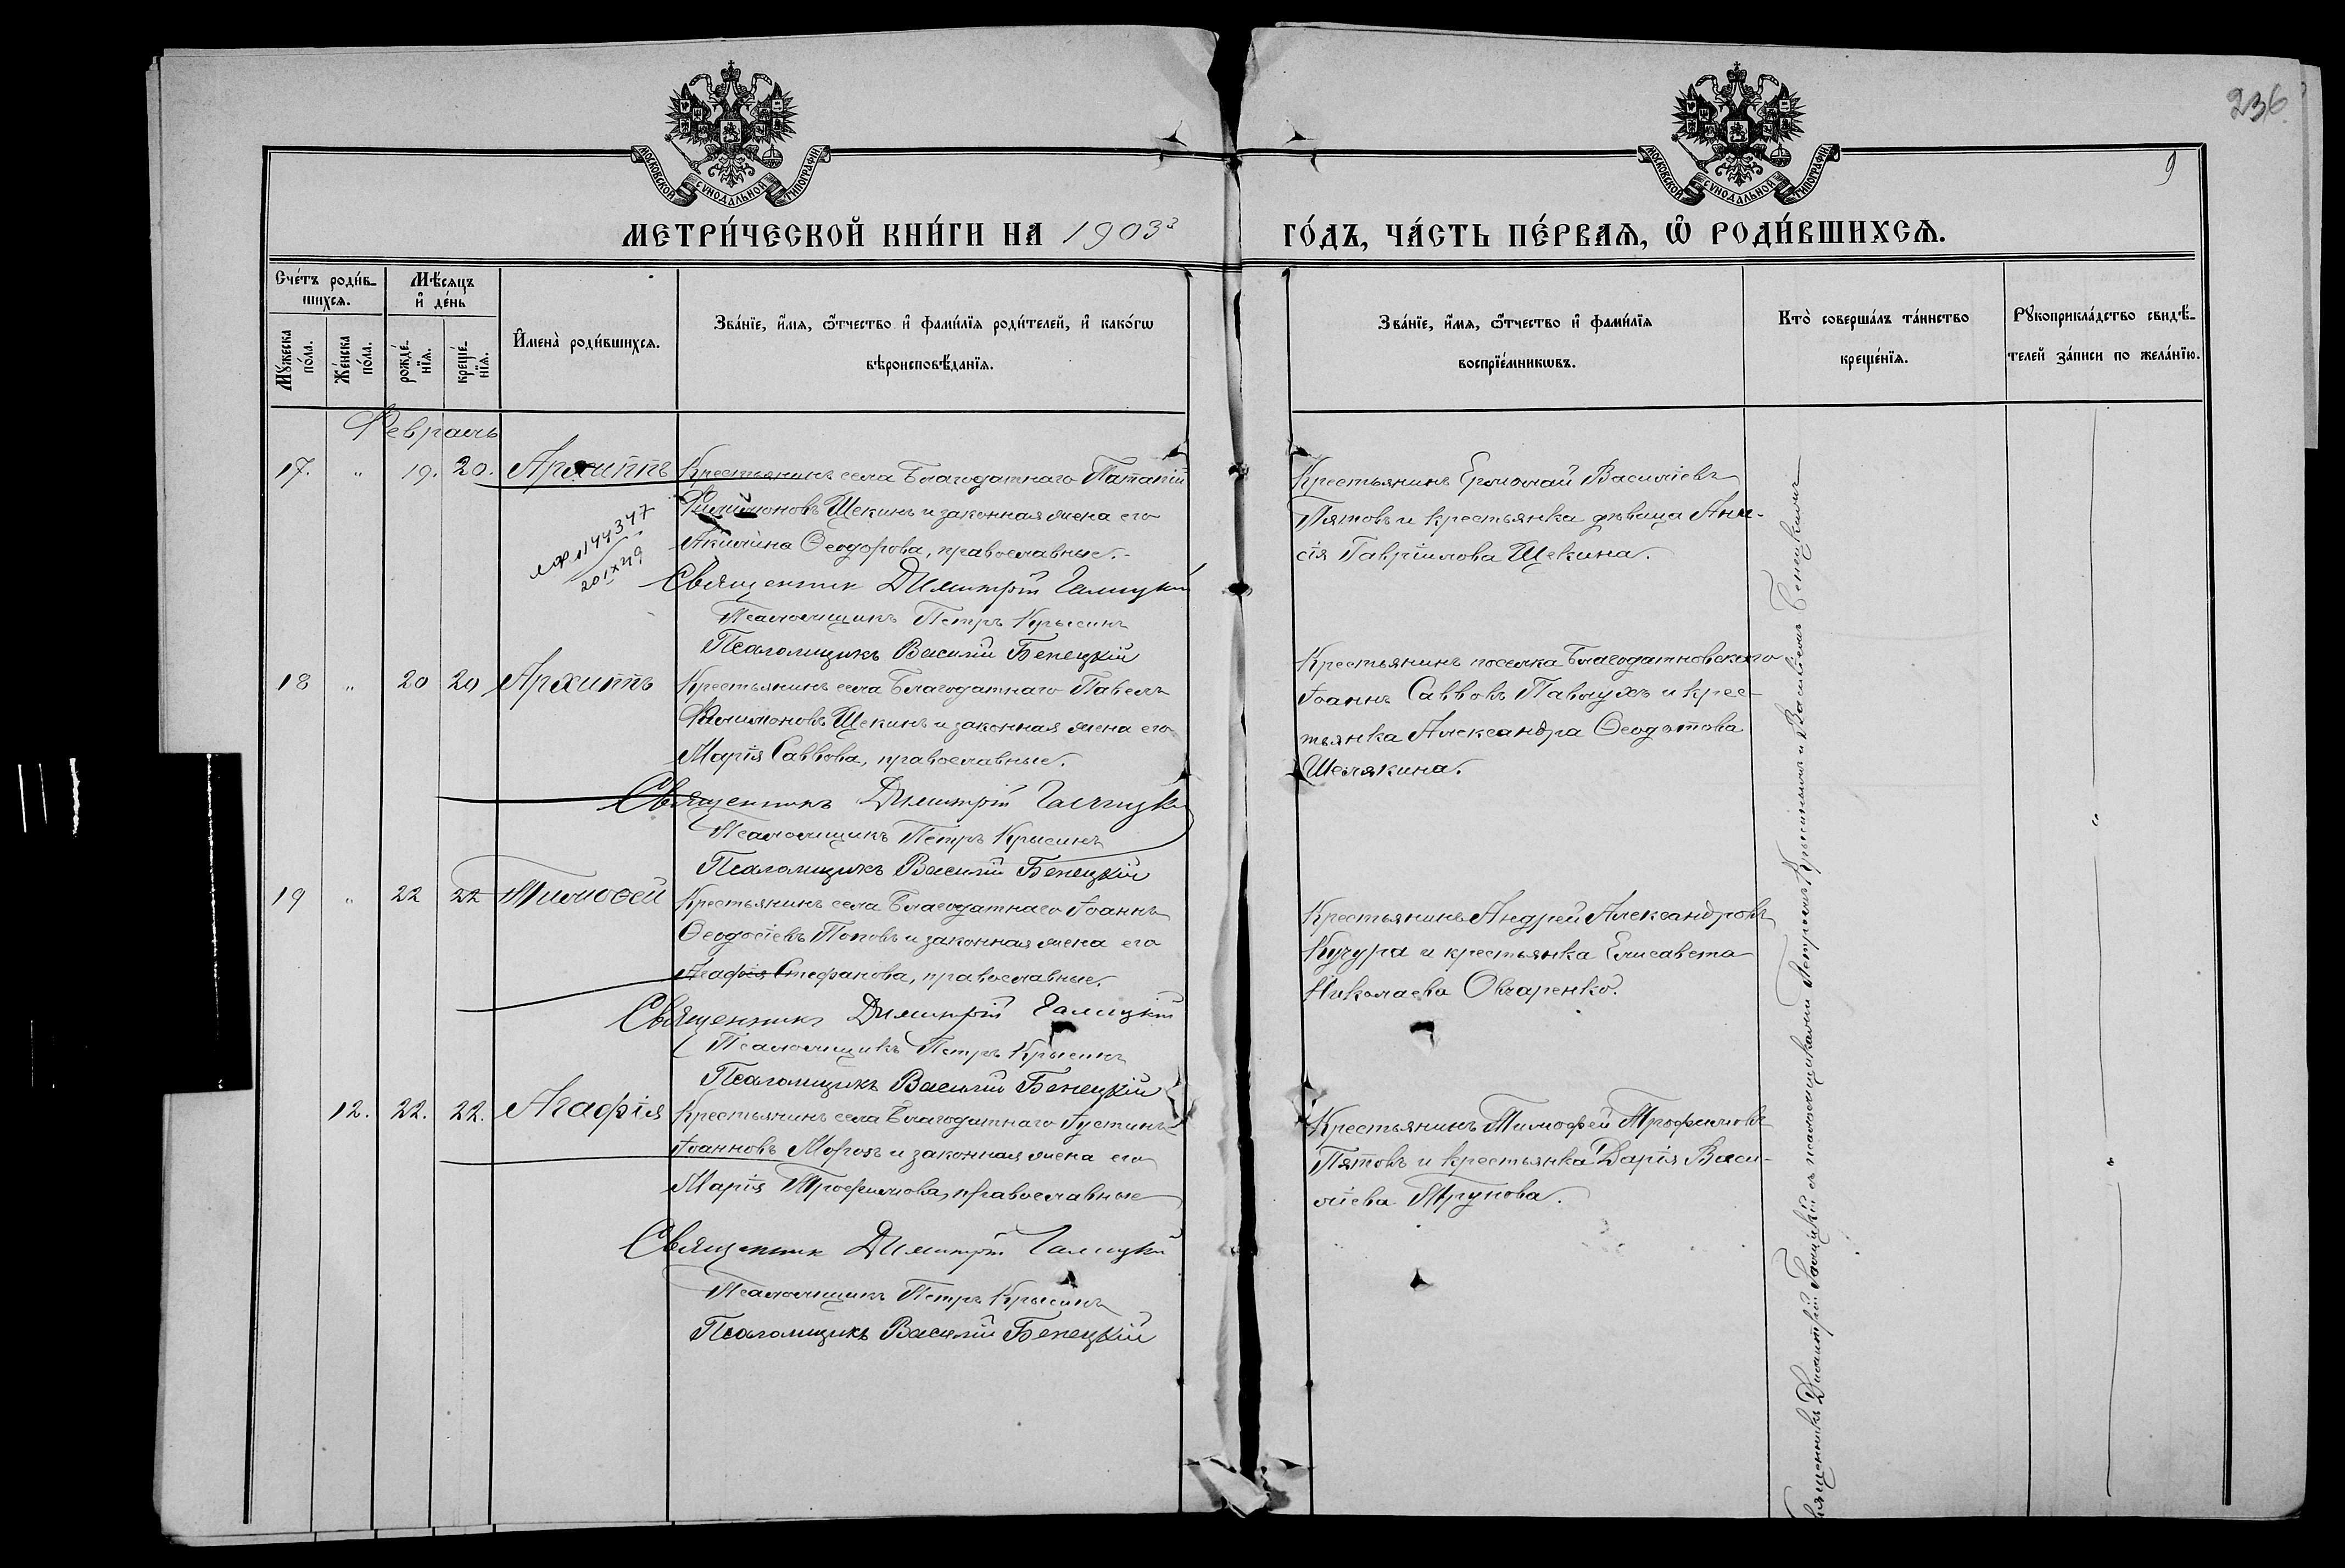 236
9
МОСКОВСКОЙ СУНОДАЛЬНОЙ ТИПОГРАФІИ.
МОСКОВСКОЙ СУНОДАЛЬНОЙ ТИПОГРАФІИ.
МЕТРИ́ЧЕСКОЙ КНИ́ГИ НА 1903
ГО́ДЪ, ЧА́СТЬ ПЕ́РВАѦ, Ѡ РОДИ́ВШИХСѦ.
Сче́тъ роди́в-
шихсѧ.
Мѣ́сѧцъ
и҆ де́нь
Мꙋ́жеска
по́ла.
Же́нска
по́ла.
рожде́-
нїѧ.
креще́-
нїѧ.
И҆мена̀ роди́вшихсѧ.
Зва́нїе, и҆́мѧ, ѻ҆́тчество и҆ фами́лїѧ роди́телей, и҆ како́гѡ
вѣроисповѣ́данїѧ.
Зва́нїе, и҆́мѧ, ѻ҆́тчество и҆ фами́лїѧ
воспрїе́мникѡвъ.
Кто̀ соверша́лъ та́инство
креще́нїѧ.
Рꙋкоприкла́дство свидѣ́-
телей за́писи по жела́нїю.
Февраль
17. " 19. 20. Архиппъ
Крестьянинъ села Благодатнаго Патапій
Филимоновъ Щекинъ и законная жена его
Акилина Ѳеодорова, православные.
Священникъ Димитрій Галицкій
Псаломщикъ Петръ Крысинъ
Псаломщикъ Василій Бенецкій
Крестьянинъ Ермолай Василіевъ
Пятовъ и крестьянка дѣвица Ани-
сія Гавріилова Щекина.
18 " 20 20 Архиппъ
Крестьянинъ села Благодатнаго Павелъ
Филимоновъ Щекинъ и законная жена его
Марія Саввова, православные.
Священникъ Димитрій Галицкій
Псаломщикъ Петръ Крысинъ
Псаломщикъ Василій Бенецкій
Крестьянинъ поселка Благодатновскаго
Іоаннъ Саввовъ Павлухъ и крес-
тьянка Александра Ѳеодотова
Шелякина.
19 " 22 22 Тимоѳей
Крестьянинъ села Благодатнаго Іоаннъ
Ѳеодосіевъ Поповъ и законная жена его
Агафія Стефанова, православные.
Священникъ Димитрій Галицкій
Псаломщикъ Петръ Крысинъ
Псаломщикъ Василій Бенецкій
Крестьянинъ Андрей Александровъ
Кучура и крестьянка Елисавета
Николаева Овчаренко.
12. 22. 22. Агафія
Крестьянинъ села Благодатнаго Іустинъ
Іоанновъ Морозъ и законная жена его
Марія Трофимова, православные
Священникъ Димитрій Галицкій
Псаломщикъ Петръ Крысинъ
Псаломщикъ Василій Бенецкій
Крестьянинъ Тимофей Трофимовъ
Пятовъ и крестьянка Дарія Васи-
ліева Трунова.
Священникъ Димитрій Галицкій съ псаломщиками Петромъ Крысинымъ и Василіемъ Бенецкимъ